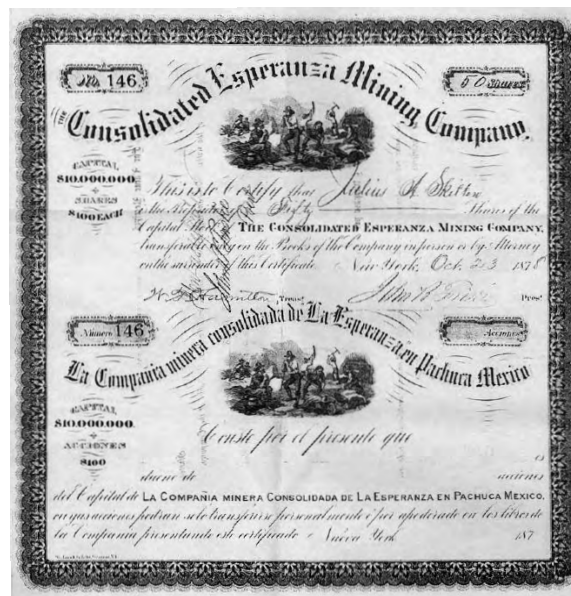 No. 146
50 SHARES
THE Consolidated Esperanza Mining Company,
CAPITAL
$10.000.000
SHARES
$100 EACH
This is to Certify that Julius A
is the Fifty Shares of the
Capital Stock THE CONSOLIDATED ESPERANZA MINING COMPANY,
transferable only on the Books of the Company in person or by Attorney
on the surrender of this Certificate New York, Oct. 23 1878
Treas. Pres.
Número 146
Acciones
La Compania minera consolidada de La Esperanza en Pachuca Mexico
CAPITAL
$10.000.000
ACCIONES
$100
Conste por el presente que
es
dueno de acciones
del Capital de LA COMPAÑIA MINERA CONSOLIDADA DE LA ESPERANZA EN PACHUCA MEXICO,
cuyas acciones podran solo transferirse personalmente ó por apoderado en los libros de
la Compania presentando este certificado Nueva York 187